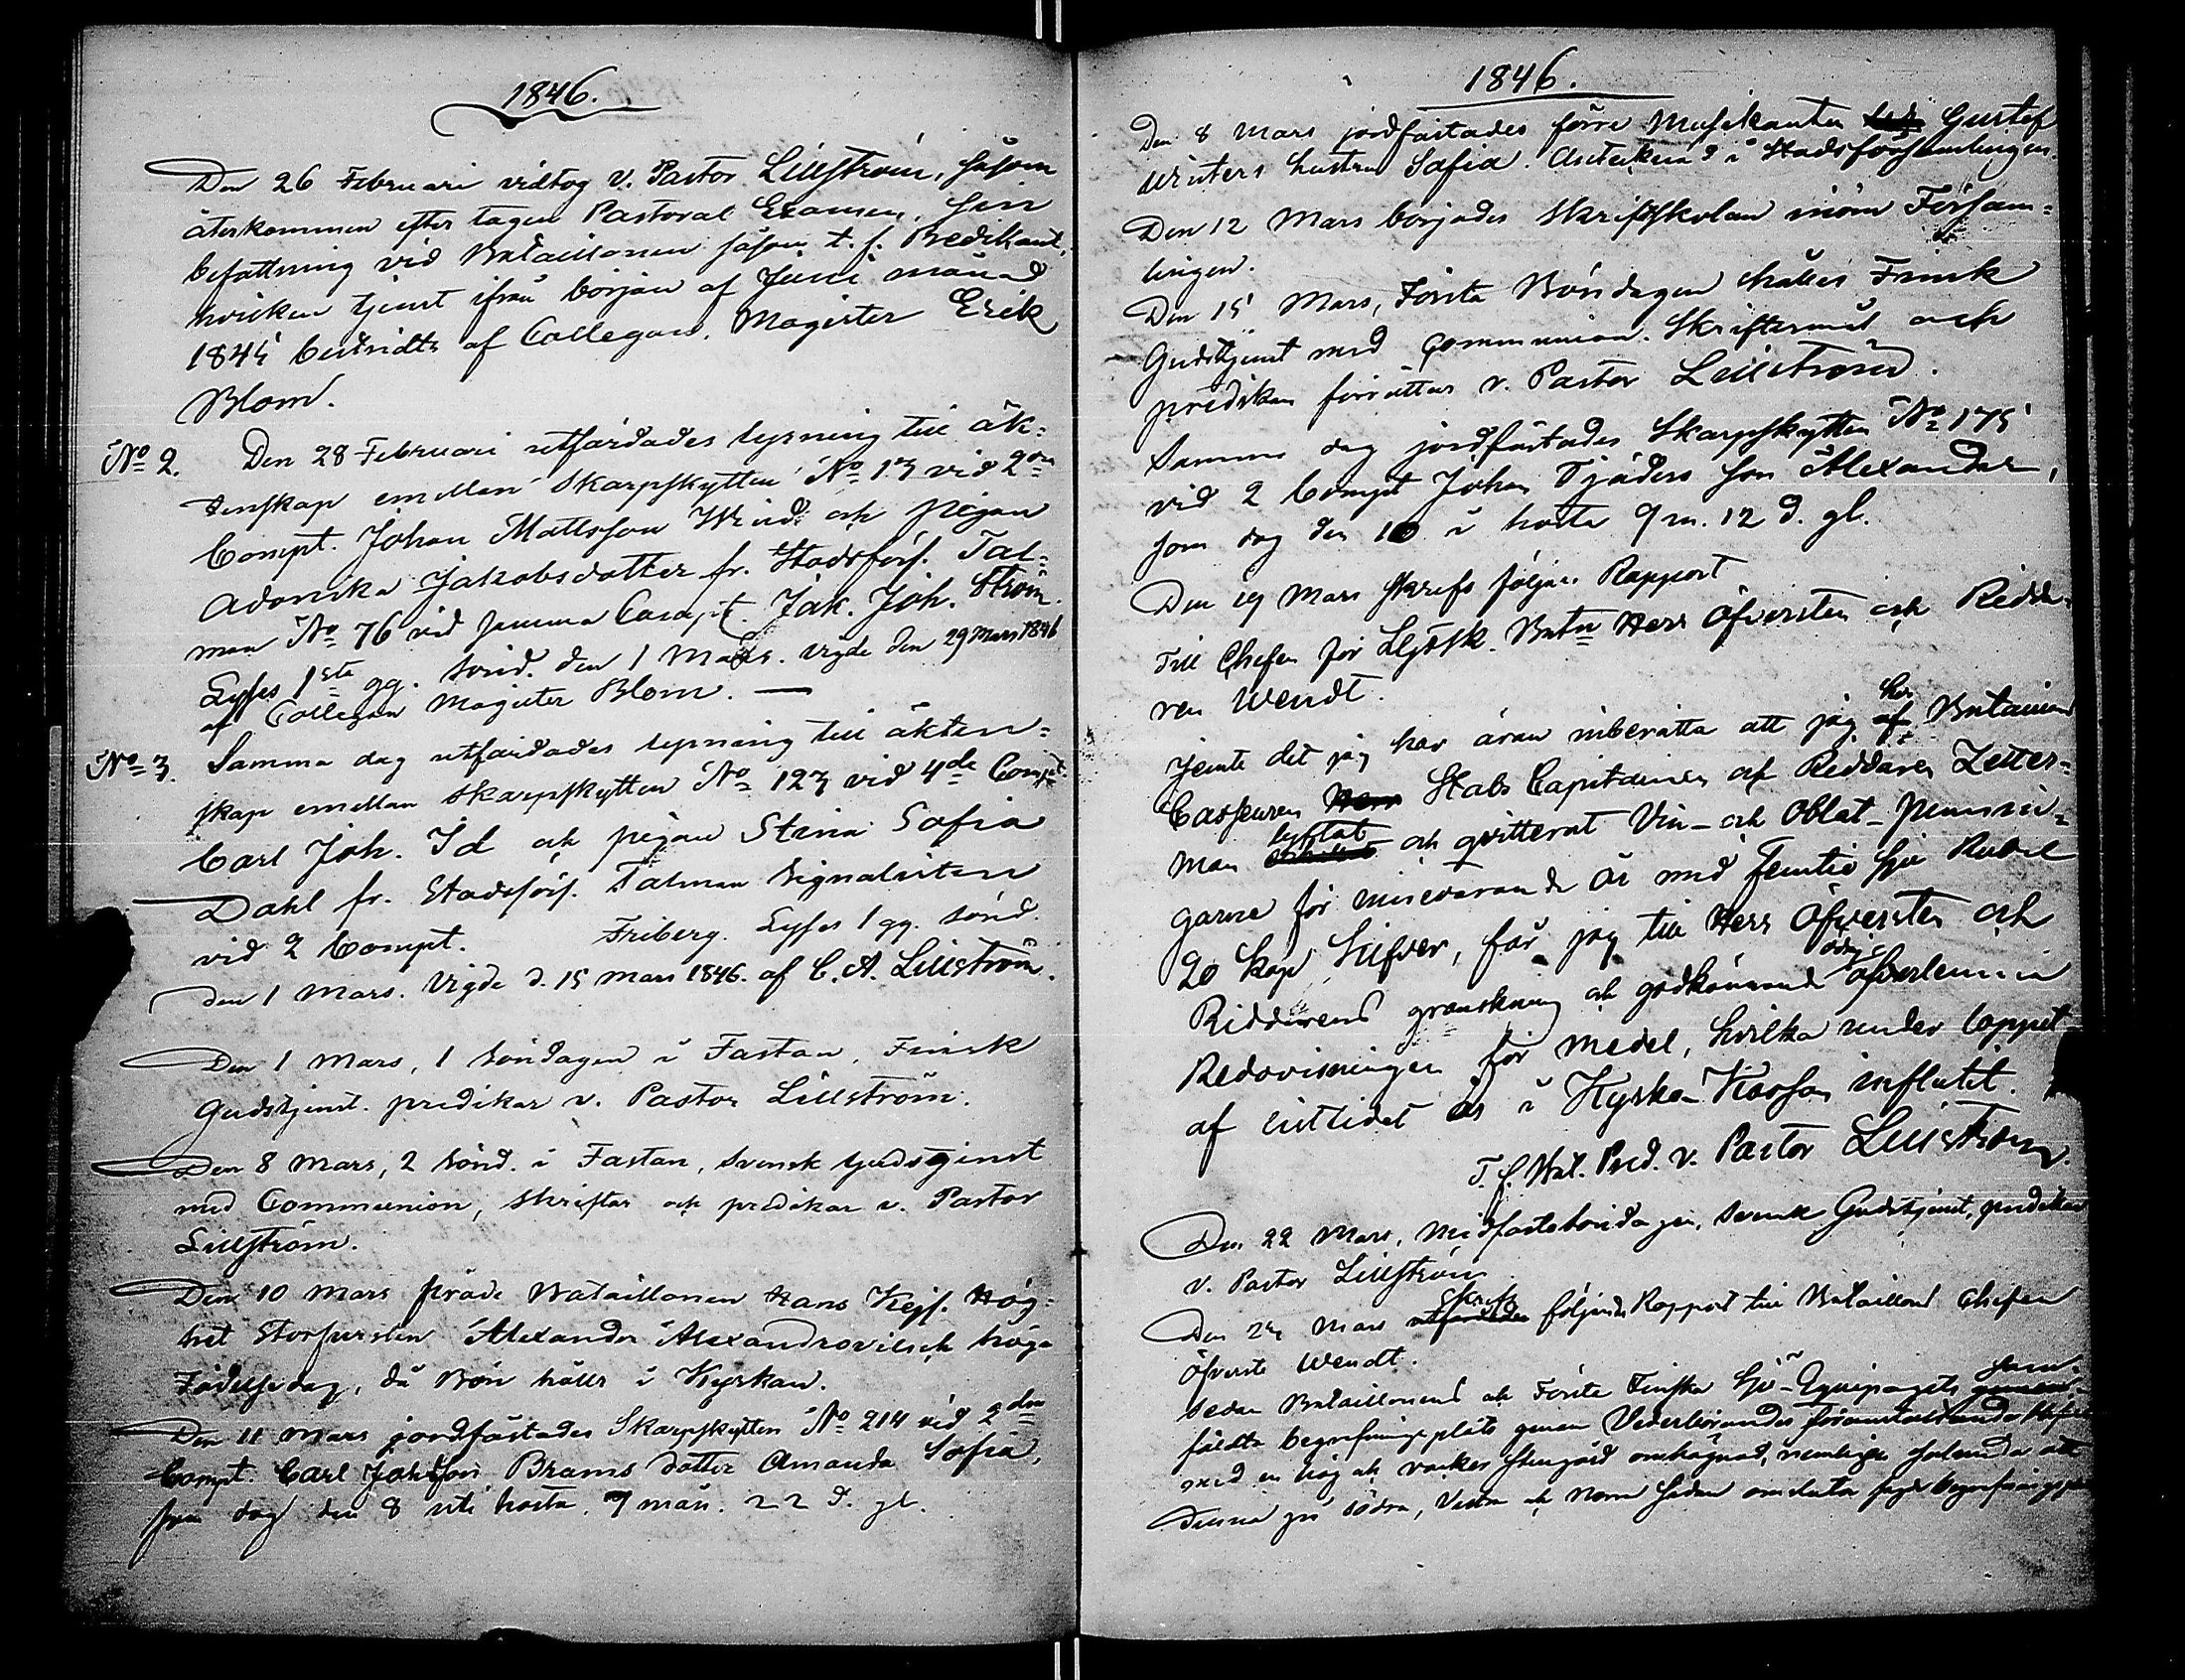 1846.
Den 26 Februari vidtog v. Pastor Lillström, såsom
återkommen efter tagen Pastoral Examen, sin
befattning vid Bataillonen såsom t. f. Predikant,
hvilken tjenst ifrån början af Juni månad
1845 bestridts af Collegan, Magister Erik
Blom.
No 2. Den 28 Februari utfärdades lysning till äk=
tenskap emellan Skarpskytten No 13 vid 2dra
Compt. Johan Mattsson Wind och pigan
Adonika Jakobsdotter fr. Stadsförs. Tal=
man No 76 vid samma Compt. Jak. Joh. Ström.
Lyses 1sta gg. Sönd. den 1 Mars. Vigde den 29 Mars 1846
af Collegan Magister Blom. —
No 3. Samma dag utfärdades lysning till äkten=
skap emellan Skarpskytten No 123 vid 4de Compt.
Carl Joh. Id och pigan Stina Sofia
Dahl fr. Stadsförs. Talman Signalisten
vid 2 Compt. Friberg. Lyses 1 gg. Sönd.
den 1 Mars. Vigde d. 15 Mars 1846. af C. A. Lillström.
Den 1 Mars, 1 Söndagen i Fastan, Finsk
Gudstjenst. predikar v. Pastor Lillström.
Den 8 Mars, 2 Sönd. i Fastan, Svensk Gudstjenst
med Communion, skriftar och predikar v. Pastor
Lillström.
Den 10 Mars firade Bataillonen Hans Kejs. Hög=
het Storfursten Alexander Alexandrovitsch höga
Födelsedag, då Bön hålls i Kyrkan.
Den 11 Mars jordfästades Skarpskytten No 214 vid 2dra
Compt. Carl Johsson Brams dotter Amanda Sofia,
som dog den 8 uti hosta, 7 mån. 22 d. gl.
1846.
Den 8 Mars jordfästades förre Musikanten Gustaf
Winters hustru Sofia. Antecknad i Stadsförsamlingen.
Den 12 Mars börjades Skriftskolan inom Försam=
lingen.
Den 15 Mars, Första Böndagen hålles Finsk
Gudstjenst med Communion. Skriftermål och
predikan förrättar v. Pastor Lillström.
Samma dag jordfästades Skarpskytten No 175
vid 2 Compt Johan Tjäders son Alexander,
som dog den 10 i hosta 9 m. 12 d. gl.
Den 19 Mars skrefs följande Rapport
Till Chefen för Batn Herr Öfversten och Ridda=
ren Wendt.
Jemte det jag har äran inberätta att jag af har Bataillons
Casseuren Herr Stabs Capitainen och Riddaren Zetter=
man lyftat och qvitterat Vin- och Oblat-pennin=
garne för innevarande år med femtio sju Rubel
20 kop Silfver, får jag till Herr Öfversten och
Riddarens granskning och godkännande öfverlemna
Redovisningen för medel, hvilka under loppet
af sistlidet år i Kyrko-Kassan influtit.
T. f. Bat. Pred. v. Pastor Lillström.
Den 22 Mars, Midfastosöndagen, Svensk Gudstjenst, predikar
v. Pastor Lillström
Den Mars utfärdades skrefs följande Rapport till Bataillons Chefen
Öfverste Wendt.
Sedan Bataillonens och Första Finska Sjö-Equipagets sam=
fäldta begrafningsplats genom Vederbörandes föranstaltande
med en hög och vacker stengärd omhägnad, nemligen sålunda att
denna på södra, Vestra och Norra sidan omsluter